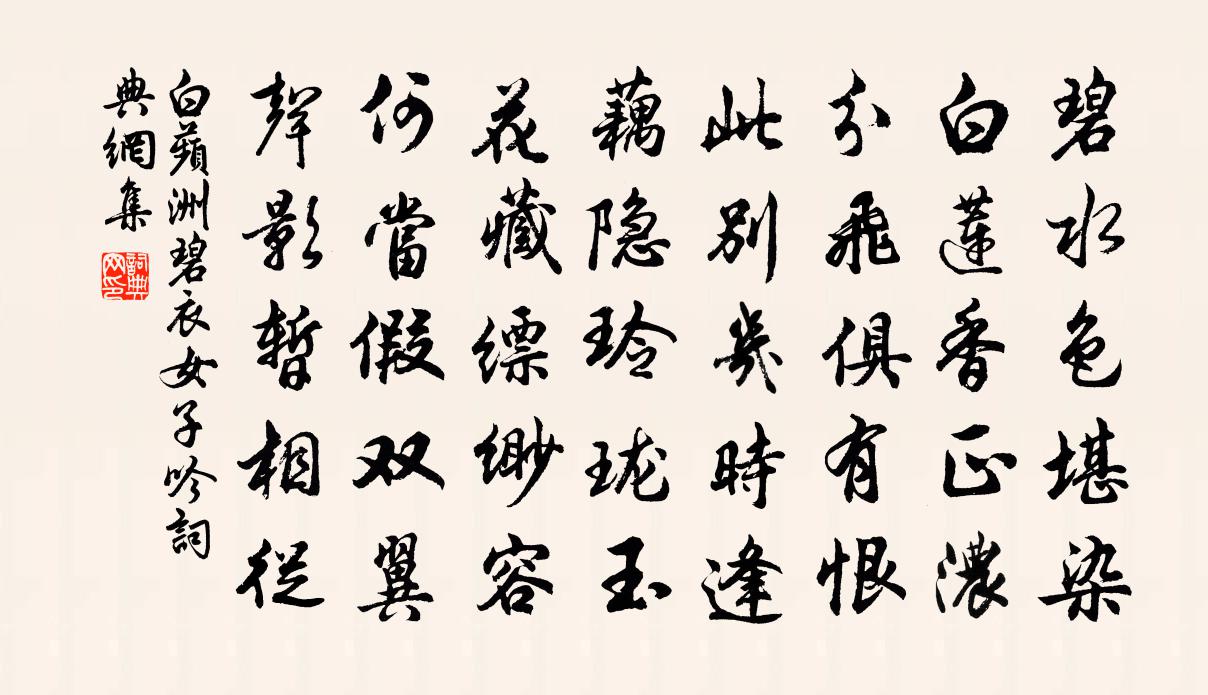 碧水色堪染
白莲香正濃
分飛俱有恨
此别幾時逢
藕隐玲珑玉
花藏缥缈容
何當假双翼
聲影暫相從
白蘋洲碧衣女子吟詞
典網集
詞典网印